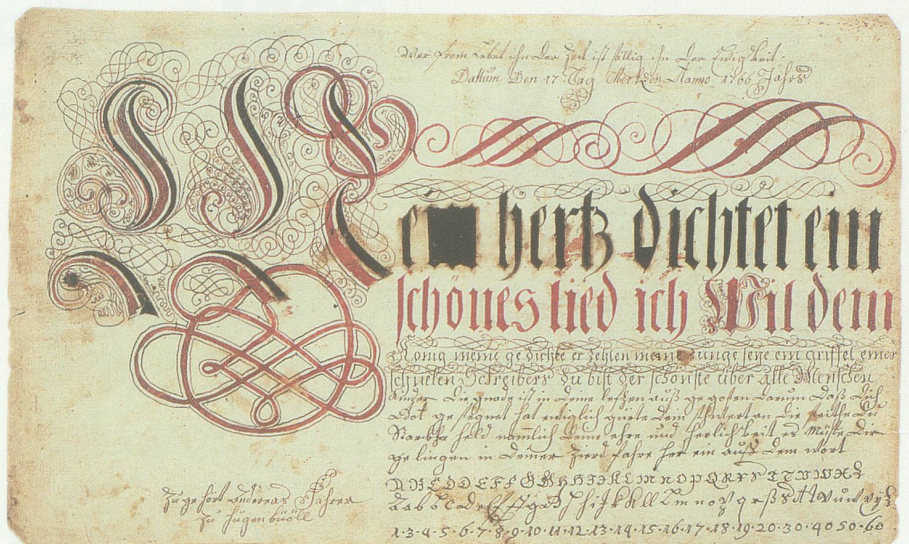 Wer from lebet ihn der Zeit ist sellig ihn der Ewigkeit:
Dattum Den 17 Tag Mertz Anno 1766 Jahrs
Mein hertz dichtet ein
schönes lied ich Wil dem
König meine ge dichte er zehlen meine zunge seÿe ein griffel eines
schnelen Schreibers du bist der schönste über alle Menschen
kinder Die gnade ist in deine lefzen auß ge gosen darum daß dich
Got ge segnet hat ewiglich gürte dein schwert an die seithe du
starckher held namlich deine ehre und herlichkeit es müste dir
ge lingen in deiner Zierd fahre her ein auf dem wort
A B C D E F G H I K L M N O P Q R S T V U W X Y Z
1·3·4·5·6·7·8·9·10·11·12·13·14·15·16·17·18·19·20·30·40 50·60
Zu ge hört Andereas
zu hügen